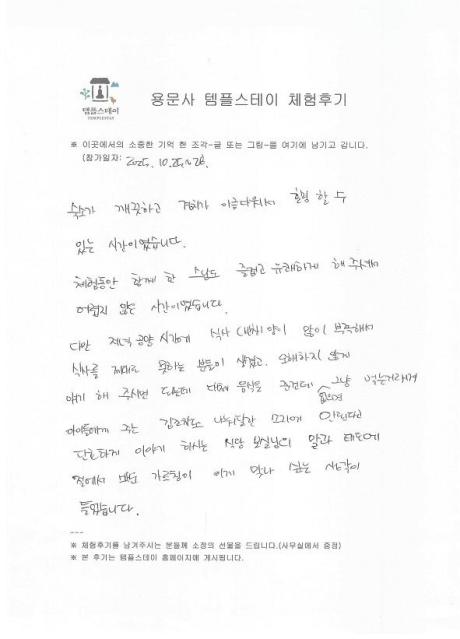 템플스테이
TEMPLESTAY
용문사 템플스테이 체험후기
※ 이곳에서의 소중한 기억 한 조각-글 또는 그림-을 여기에 남기고 갑니다.
(참가일자: 2025. 10. 25~26.
숙소가 깨끗하고 경치가 아름다워서 힐링 할 수
있는 시간이었습니다.
체험동안 함께 한 스님도 즐겁고 유쾌하게 해 주셔서
어렵지 않은 시간이었습니다.
다만 저녁 공양 시간에 식사 양이 많이 부족해서
식사를 제대로 못하는 분들이 생겼고. 오해하지 않게
얘기 해 주시면 되는데 대체 음식을 주건데 없으면 그냥 먹는거라며
아이들에게 주는 김조차도 나눠달란 소리에 안된다고
단호하게 이야기 하시는 식당 보살님의 말과 태도에
절에서 배운 가르침이 이게 맞나 싶은 생각이
들었습니다.
---
※ 체험후기를 남겨주시는 분들께 소정의 선물을 드립니다.(사무실에서 증정)
※ 본 후기는 템플스테이 홈페이지에 게시됩니다.